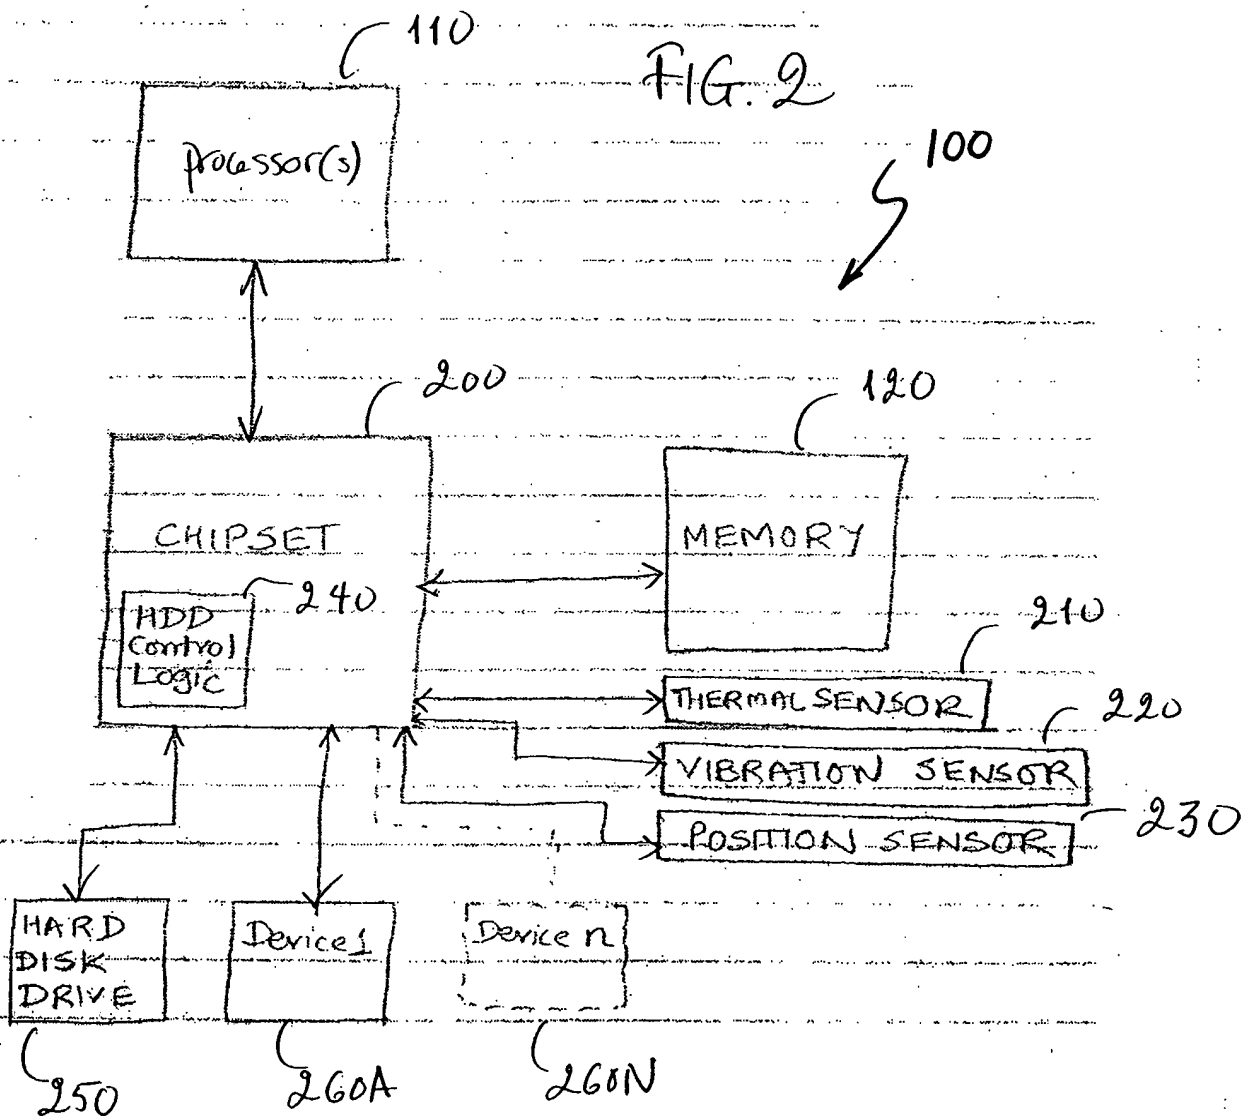 110
FIG. 2
processor(s)
100
200
120
CHIPSET
MEMORY
240
HDD
Control
Logic
210
THERMAL SENSOR
220
VIBRATION SENSOR
230
POSITION SENSOR
HARD
DISK
DRIVE
Device 1
Device n
250
260A
260N